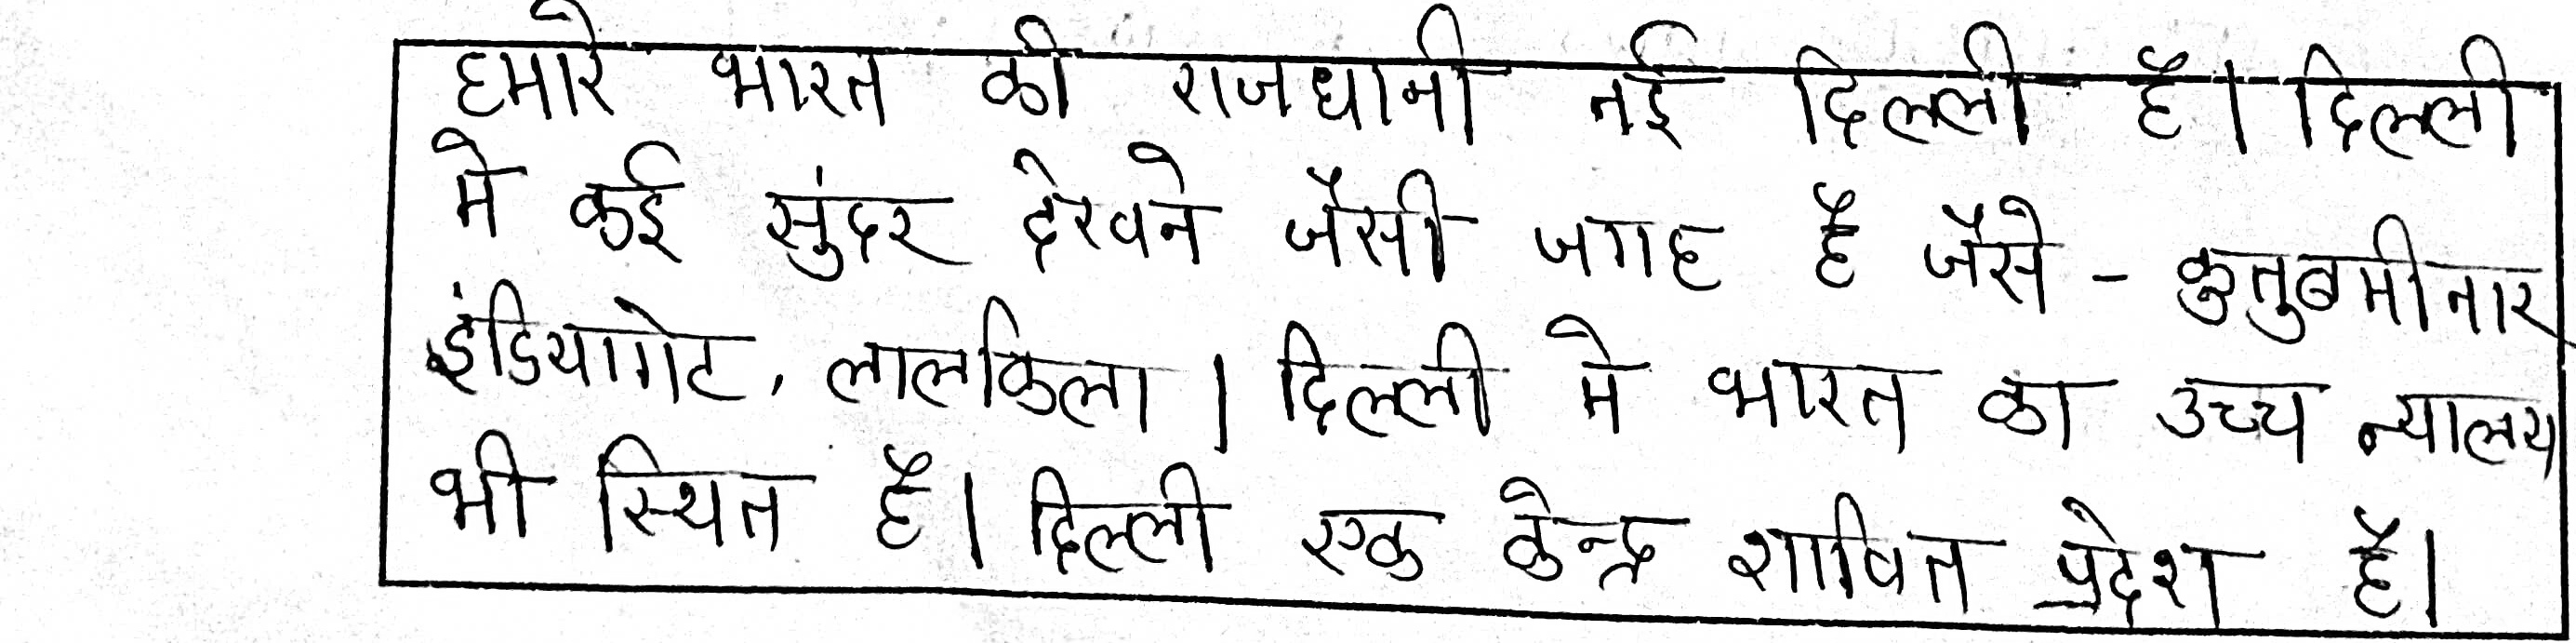 हमारे भारत की राजधानी नई दिल्ली है। दिल्ली
मे कई सुंदर देखने जैसी जगह है जैसे - कुतुबमीनार
इंडियागेट, लालकिला। दिल्ली मे भारत का उच्च न्यालय
भी स्थित है। दिल्ली एक केन्द्र शाषित प्रदेश है।